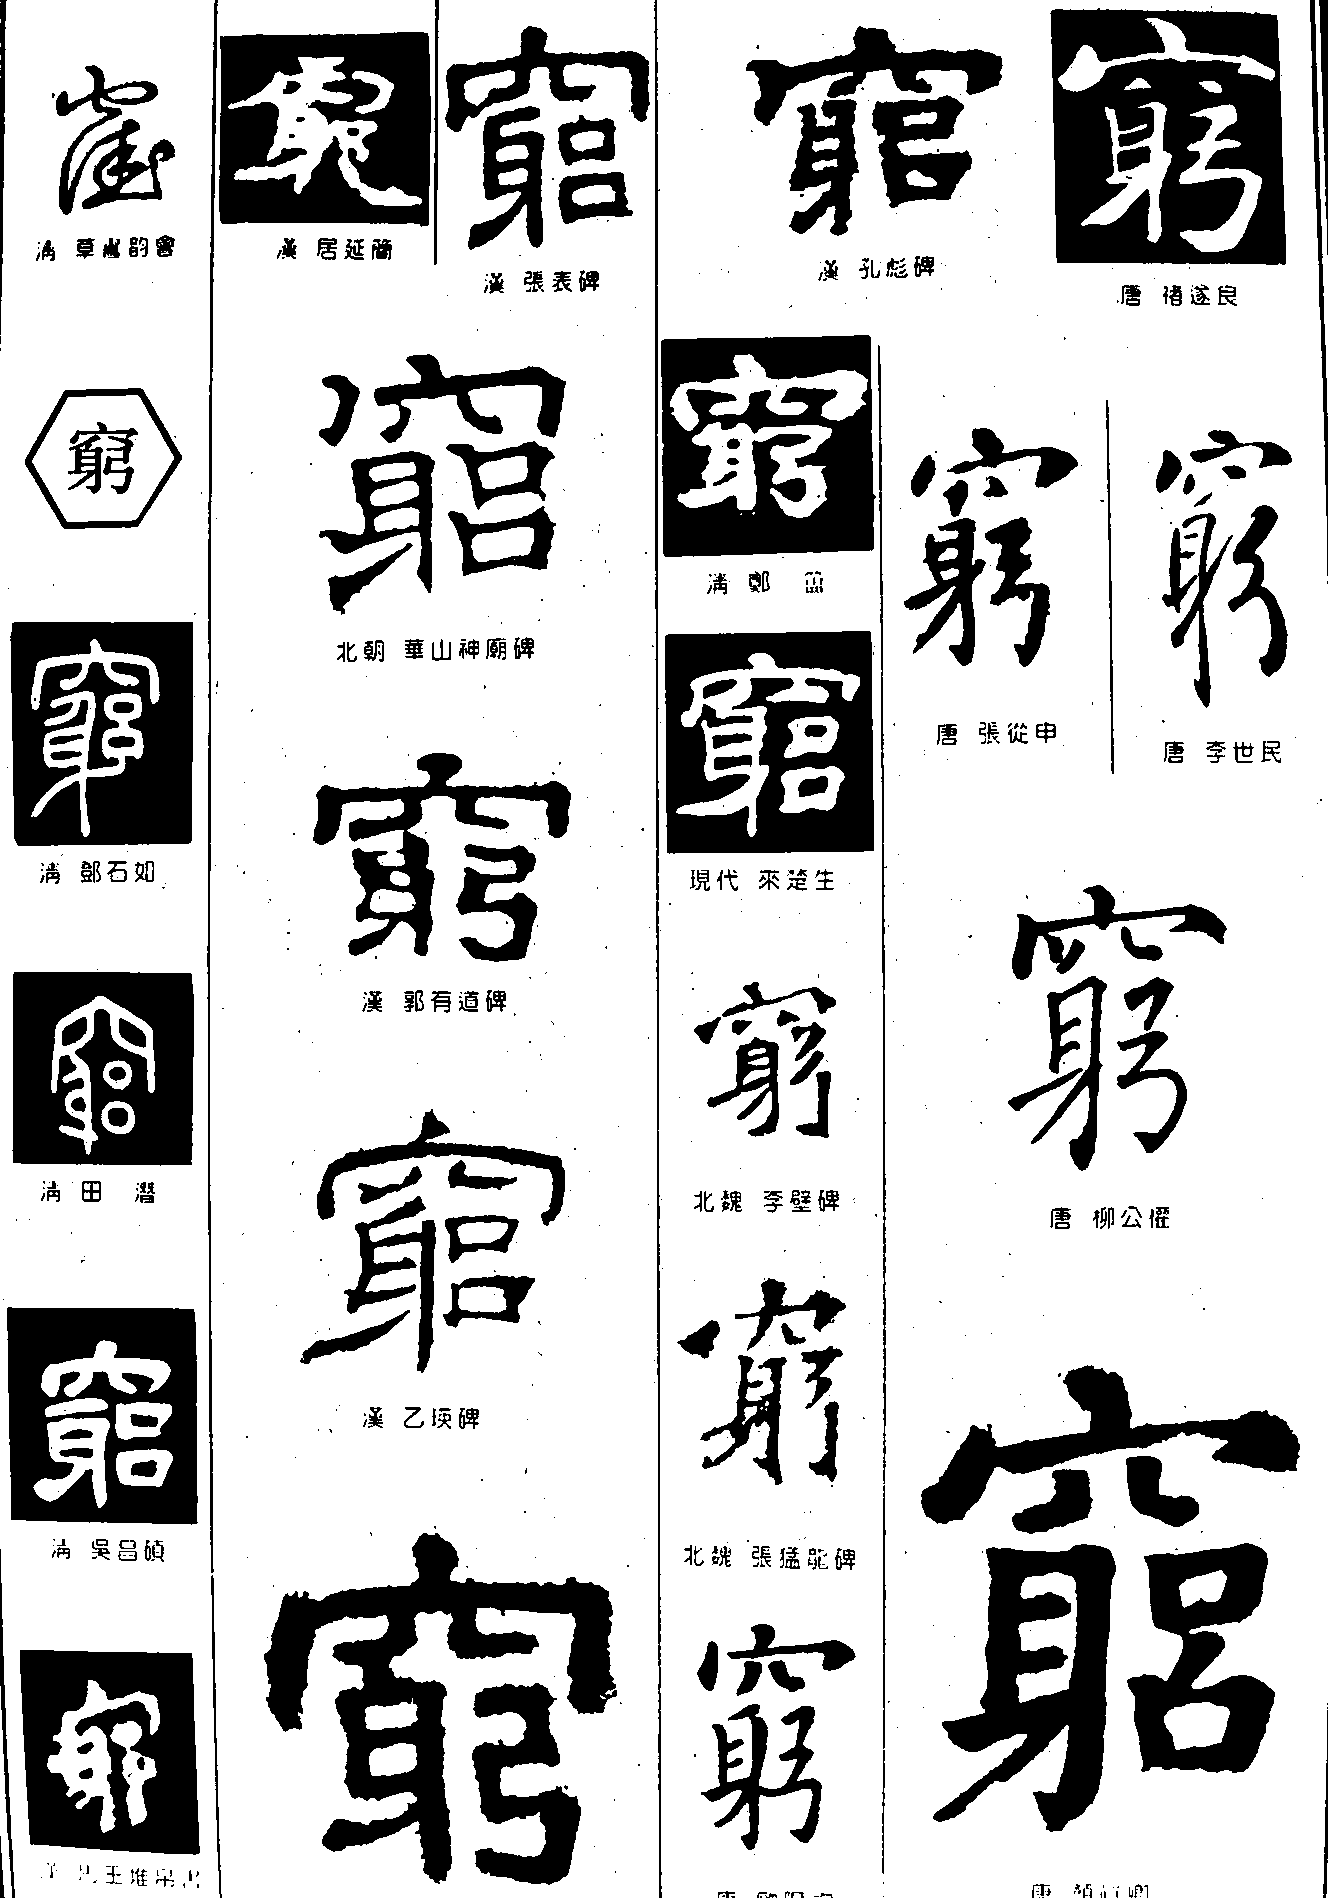 窮
唐 褚遂良
窮
漢 孔彪碑
窮
漢 張表碑
窮
漢 居延簡
窮
清 草書韵會
窮
唐 李世民
窮
唐 張從申
窮
唐 柳公權
窮
唐 顏真卿
窮
清 鄭 簠
竆
現代 來楚生
窮
北魏 李壁碑
窮
北魏 張猛龍碑
窮
竆
北朝 華山神廟碑
窮
漢 郭有道碑
竆
漢 乙瑛碑
窮
窮
竆
清 鄧石如
竆
清 田 潛
竆
清 吳昌碩
窮
馬王堆帛書